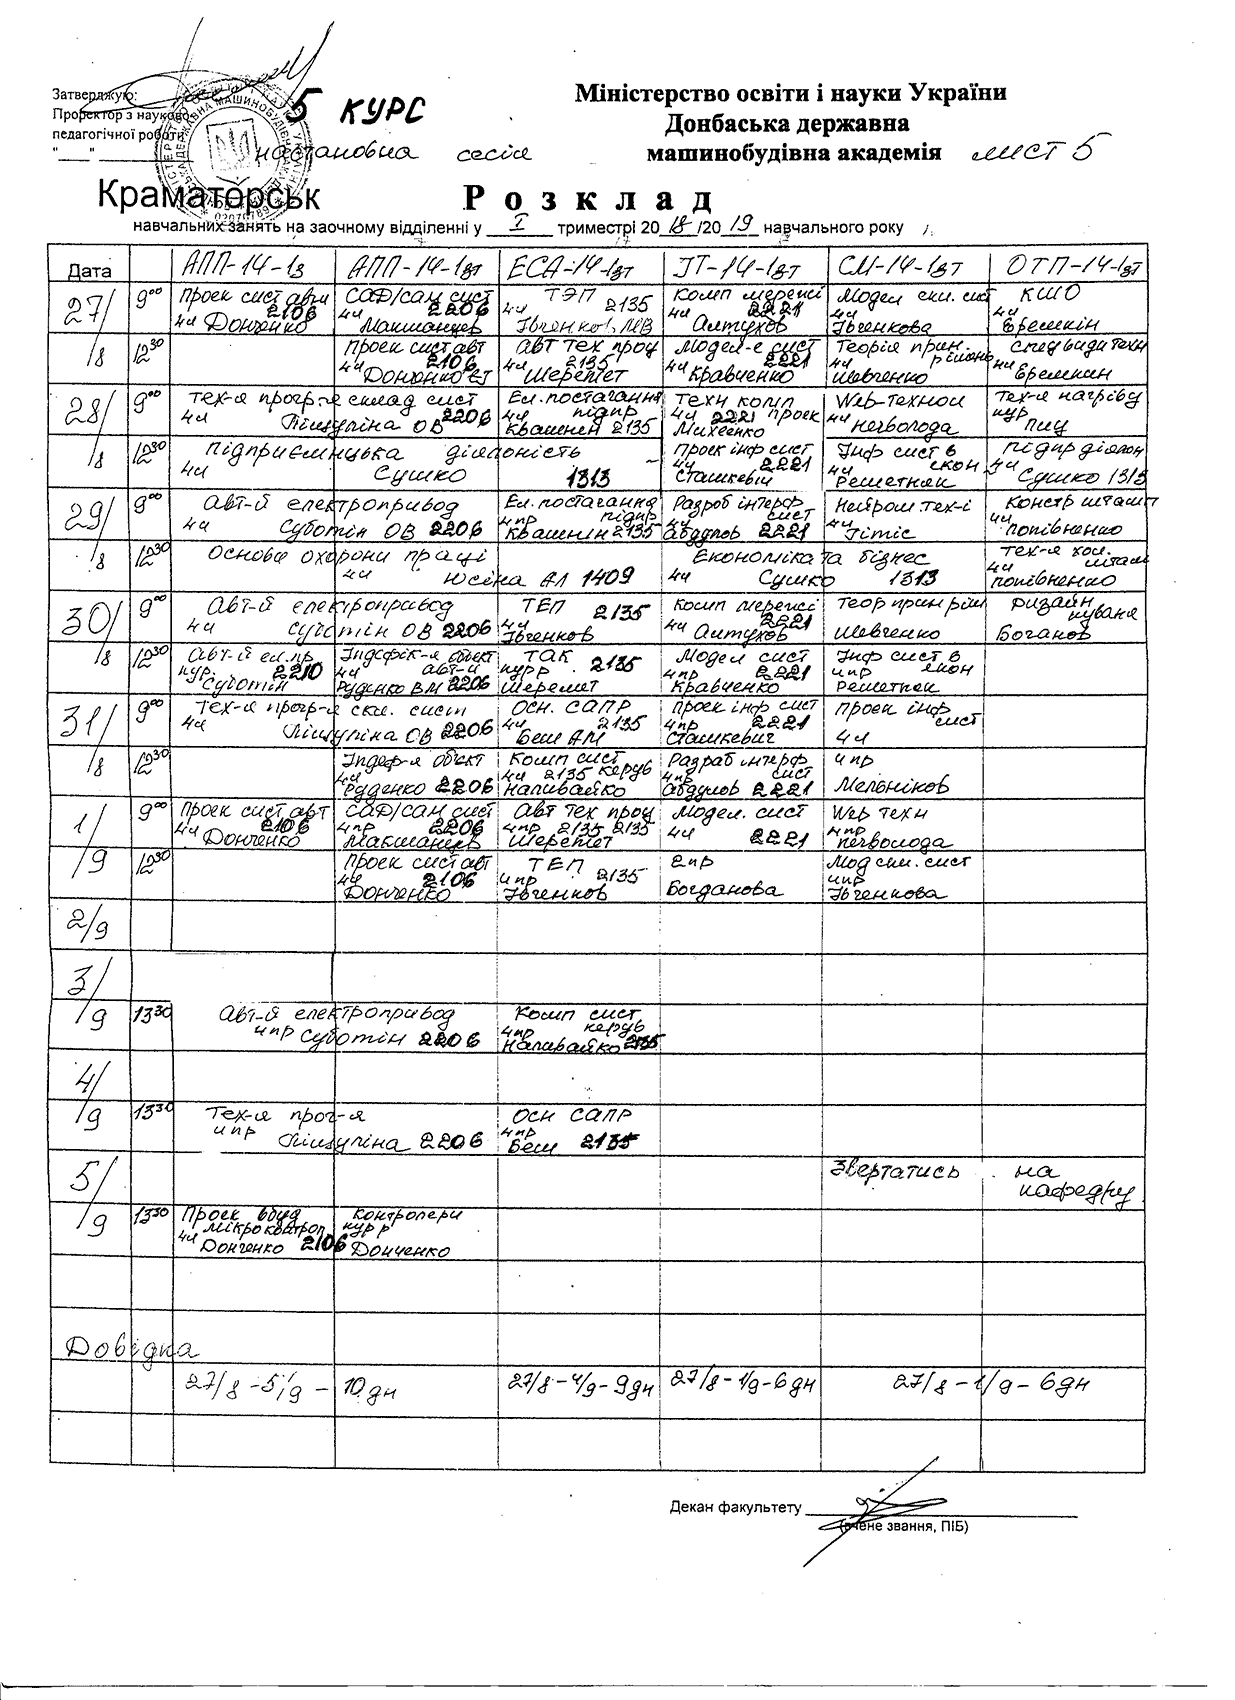 Затверджую:
Проректор з науково-
педагогічної роботи
"___" ___________
5 КУРС
настановна сесія
Міністерство освіти і науки України
Донбаська державна
машинобудівна академія лист 5
Краматорськ
Розклад
навчальних занять на заочному відділенні у I триместрі 2018/2019 навчального року
Дата АПП-14-1з АПП-14-1зт ЕСА-14-1зт ІТ-14-1зт СМ-14-1зт ОТП-14-1зт
27/8 9⁰⁰
Проек сист авт 2106 4ч Донченко
САФ/сам сист 2206 4ч Макшанцев
ТЭП 2135 4ч Івченков МВ
Комп мережі 2221 4ч Алтухов
Модел екн. сист 4ч Івченкова
КШО 4ч Еремкін
12³⁰
Проек сист авт 2106 4ч Донченко ЕІ
АВТ тех проц 2135 4ч Шеремет
Модел-е сист 2221 4ч Кравченко
Теорія прин. рішень 4ч Шевченко
спец види техн 4ч Еремкин
28/8 9⁰⁰
Тех-я прогр-я склад сист 4ч Лішупіна ОВ 2206
Ел. постачання підпр 4ч Квашнін 2135
Техн комп проек 4ч 2221 Михеенко
Web-технол 4ч Нечволода
Тех-я нагріву кур ПИЦ
12³⁰
підприємницька діяльність 4ч Сушко 1313
Проек інф сист 4ч 2221 Сташкевич
Інф сист в екон. 4ч Решетняк
підпр діялон 4ч Сушко 1313
29/8 9⁰⁰
Авт-й електропривод 4ч Суботін ОВ 2206
Ел. постачання підпр 4пр Квашнін 2135
Разроб інтерф сист 4ч Абдулов 2221
Нейром. тех-і 4ч Гітіс
Констр штамп 4ч попівненко
12³⁰
Основи охорони праці 4ч Юсіна АЛ 1409
Економіка та бізнес 4ч Сушко 1313
Тех-я хол. штамп 4ч попівненко
30/8 9⁰⁰
Авт-й електропривод 4ч Суботін ОВ 2206
ТЕП 2135 4ч Івченков
Комп мережі 4ч 2221 Алтухов
Теор прин ріш Шевченко
Дизайн Боганов
12³⁰
Авт-й ел. пр кур. 2210 Суботін
Індефік-я объект авт-й 4ч Руденко ВМ 2206
ТАК 2135 кур р Шеремет
Модел сист 4пр 2221 Кравченко
Інф сист в екон 4пр Решетняк
31/8 9⁰⁰
Тех-я прогр-я скл. сист 4ч Лішупіна ОВ 2206
Осн. САПР 4ч 2135 Беш АМ
проек інф сист 4пр 2221 Сташкевич
проек інф сист 4ч
12³⁰
Індеф-я объект 4ч Руденко 2206
Комп сист керув 4ч 2135 Наливайко
Разраб інтерф сист 4пр Абдулов 2221
4пр Мельніков
1/9 9⁰⁰
Проек сист авт 4ч 2106 Донченко
САФ/сам сист 4пр 2206 Макшанцев
Авт тех проц 4пр 2135 2135 Шеремет
Модел. сист 4ч 2221
Web техн 4пр Нечволода
12³⁰
Проек сист авт 4ч 2106 Донченко
ТЕП 4пр 2135 Івченков
2пр Богданова
Мод екн. сист 4пр Івченкова
2/9
3/9 13³⁰
Авт-й електропривод 4пр Суботін 2206
Комп сист керув 4пр Наливайко 2135
4/9 13³⁰
Тех-я прог-я 4пр Лішупіна 2206
Осн САПР 4пр Беш 2135
5/9
Звертатись на кафедру
13³⁰
Проек вбуд мікроконтрол 4ч Донченко 2106
Контролери кур р Донченко
Довідка
27/8-5/9 - 10 дн 27/8-4/9-9дн 27/8-1/9-6дн 27/8-1/9-6дн
Декан факультету
(вчене звання, ПІБ)